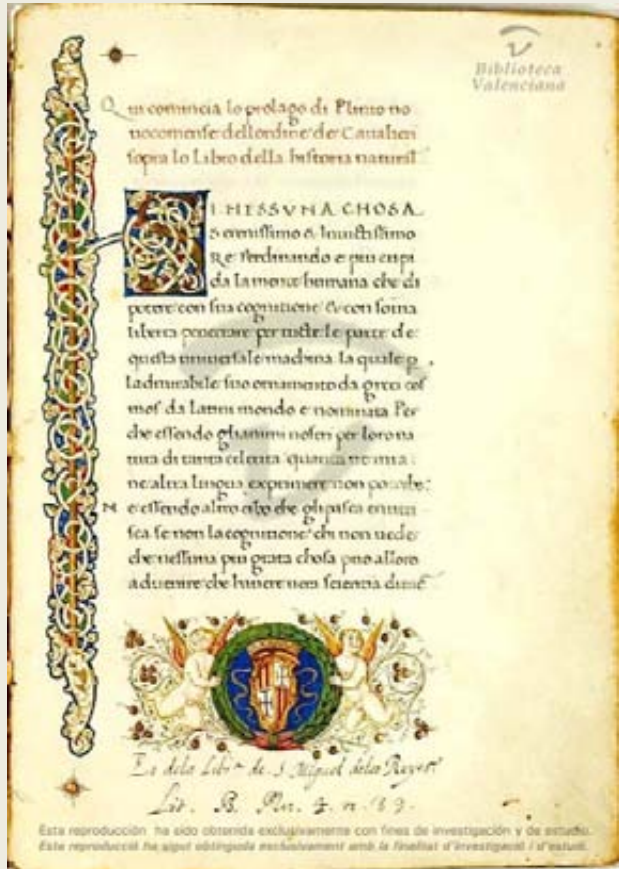 Biblioteca
Valenciana
Qui comincia lo prolago di Plinio no
uocomense dellordine de Caualieri
sopra lo Libro della historia natural
I NESSVNA CHOSA
Serenissimo & Inuictissimo
Re ferdinando e piu cupi
da la mente humana che di
potere con sua cognitione & con somma
liberta penetrare per tutte le parte de
questa uniuersale machina la quale p
ladmirabile suo ornamento da greci cos
mos da latini mondo e nominata Per
che essendo glianimi nostri per loro na
tura di tanta celerita quanta ne mia
ne altra lingua exprimere non potrebbe
N
e essendo altro cibo che gli pasca e nutri
sca se non la cognitione chi non uede
che nessuna piu grata chosa puo alloro
aduenire che hauere uera scientia
Es dela Libra de S. Miguel delos Reyes
Lit. B. Plu. 4. n 89.
Esta reproducción ha sido obtenida exclusivamente con fines de investigación y de estudio.
Esta reproducció ha sigut obtinguda exclusivament amb la finalitat d'investigació i d'estudi.